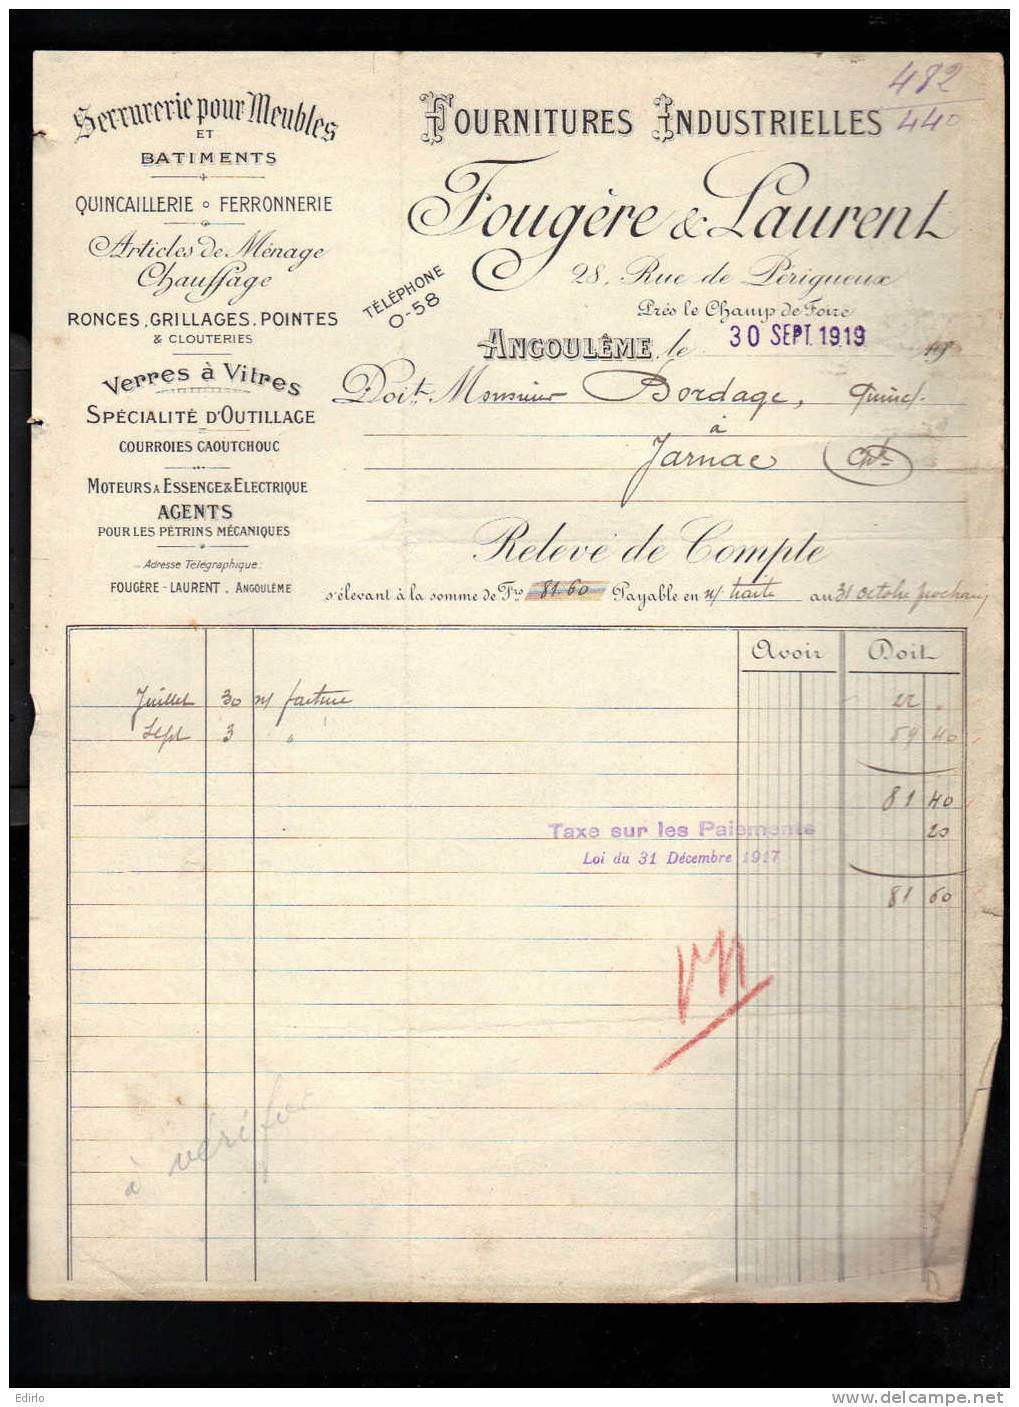 482
440
Serrurerie pour Meubles
ET
BATIMENTS
QUINCAILLERIE FERRONNERIE
Articles de Ménage
Chauffage
RONCES, GRILLAGES, POINTES
& CLOUTERIES
Verres à Vitres
SPÉCIALITÉ D'OUTILLAGE
COURROIES CAOUTCHOUC
MOTEURS A ESSENCE & ELECTRIQUE
AGENTS
POUR LES PÉTRINS MÉCANIQUES
Adresse Télégraphique:
FOUGÈRE - LAURENT . ANGOULÊME
FOURNITURES INDUSTRIELLES
Fougère & Laurent
28, Rue de Périgueux
Près le Champ de Foire
TÉLÉPHONE
0-58
ANGOULÊME, le 30 SEPT. 1919 19
Doit Monsieur Bordage, Quinc.
à
Jarnac Chte
Relevé de Compte
s'élevant à la somme de Frs 81.60 Payable en n/ traite au 31 octobre prochain
Avoir Doit
Juillet 30 n/ facture 22 "
Sept 3 " 59 40
81 40
Taxe sur les Paiements 20
Loi du 31 Décembre 1917
81 60
à vérifier
Edirlo
www.delcampe.net